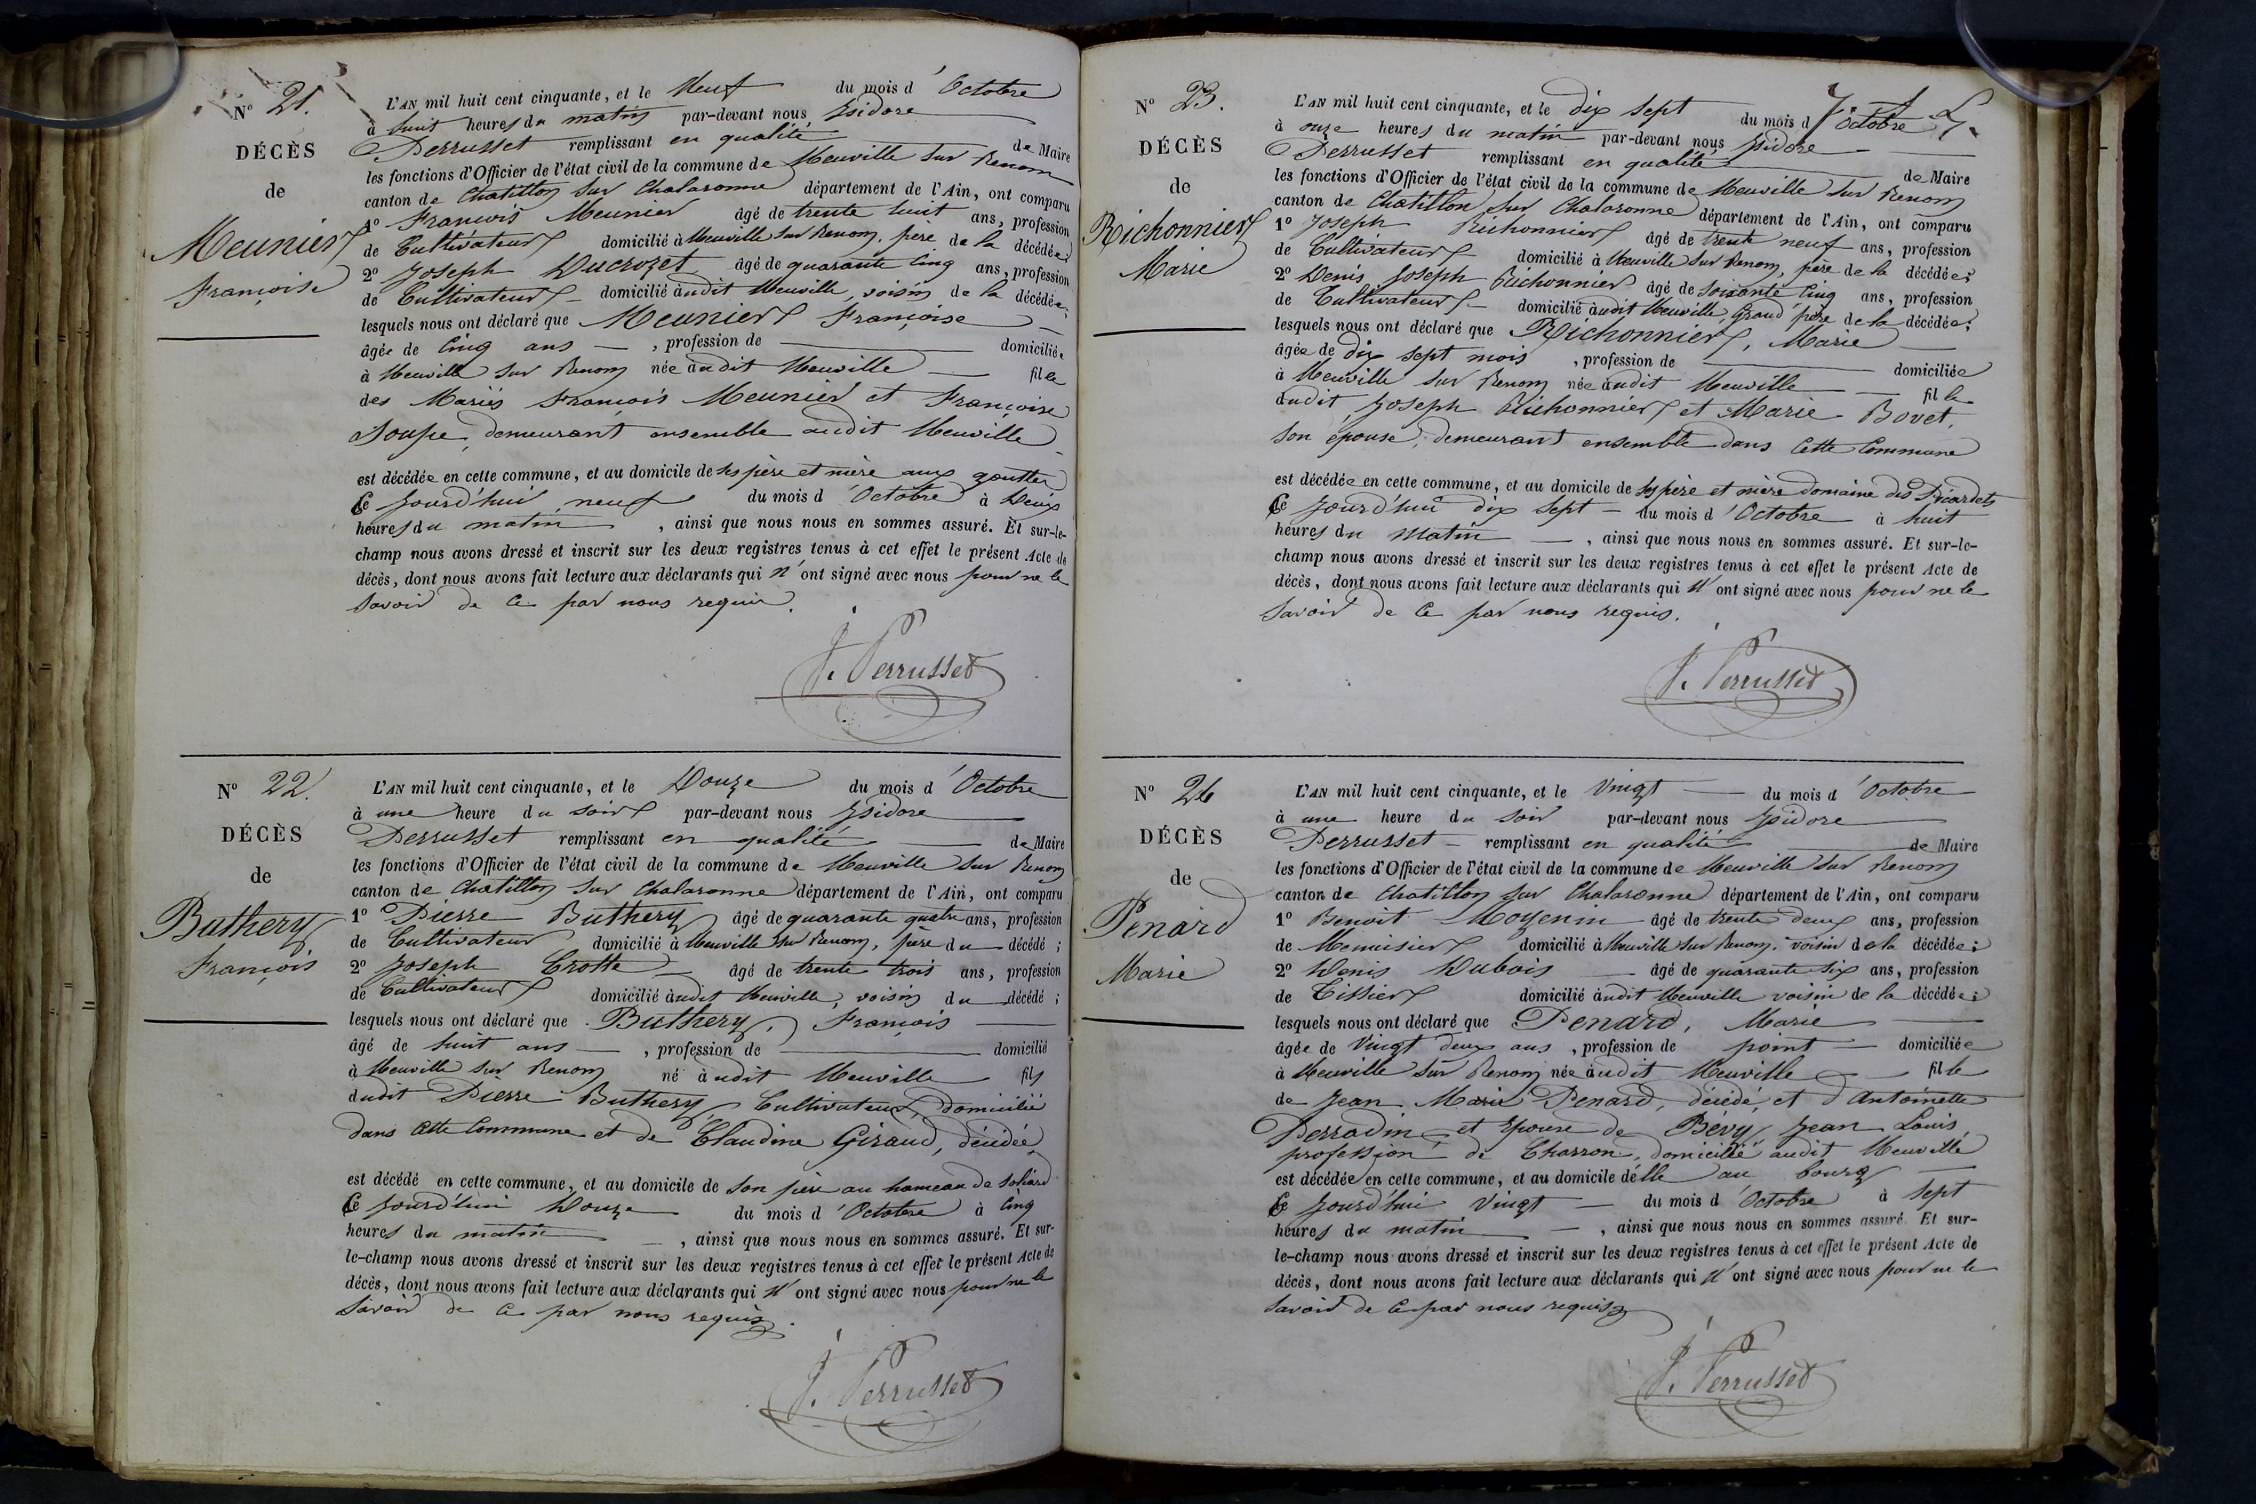 N° 21.
DÉCÈS
de
Meunier
Françoise
L'AN mil huit cent cinquante, et le Neuf du mois d'Octobre
à huit heures du matin par-devant nous Isidore
Perrusset remplissant en qualité de Maire
les fonctions d'Officier de l'état civil de la commune de Neuville sur Renom
canton de Chatillon sur Chalaronne département de l'Ain, ont comparu
1° François Meunier âgé de trente huit ans, profession
de Cultivateur domicilié à Neuville sur Renom, père de la décédée;
2° Joseph Ducrozet âgé de quarante cinq ans, profession
de Cultivateur domicilié àudit Neuville, voisin de la décédée;
lesquels nous ont déclaré que Meunier Françoise
âgée de Cinq ans , profession de domiciliée
à Neuville sur Renom née àudit Neuville fille
des Mariés François Meunier et Françoise
Soupe, demeurant ensemble audit Neuville
est décédée en cette commune, et au domicile de ses père et mère aux goutter
Ce jourd'hui neuf du mois d'Octobre à Deux
heures du matin , ainsi que nous nous en sommes assuré. Et sur-le-
champ nous avons dressé et inscrit sur les deux registres tenus à cet effet le présent Acte de
décès, dont nous avons fait lecture aux déclarants qui n'ont signé avec nous pour ne le
savoir de ce par nous requis.
J. Perrusset
N° 22.
DÉCÈS
de
Buthery
François
L'AN mil huit cent cinquante, et le Douze du mois d'Octobre
à une heure du soir par-devant nous Isidore
Perrusset remplissant en qualité de Maire
les fonctions d'Officier de l'état civil de la commune de Neuville sur Renom
canton de Chatillon sur Chalaronne département de l'Ain, ont comparu
1° Pierre Buthery âgé de quarante quatre ans, profession
de Cultivateur domicilié à Neuville sur Renom, père du décédé;
2° Joseph Crotte âgé de trente trois ans, profession
de Cultivateur domicilié àudit Neuville, voisin du décédé;
lesquels nous ont déclaré que Buthery, François
âgé de huit ans , profession de domicilié
à Neuville sur Renom né àudit Neuville fils
dudit Pierre Buthery, Cultivateur, domicilié
dans cette Commune et de Claudine Giraud, décédée,
est décédé en cette commune, et au domicile de son père au hameau de
Ce jourd'hui Douze du mois d'Octobre à Cinq
heures du matin , ainsi que nous nous en sommes assuré. Et sur-
le-champ nous avons dressé et inscrit sur les deux registres tenus à cet effet le présent Acte de
décès, dont nous avons fait lecture aux déclarants qui n'ont signé avec nous pour ne le
savoir de ce par nous requis.
J. Perrusset
N° 23.
DÉCÈS
de
Richonnier
Marie
L'AN mil huit cent cinquante, et le dix sept du mois d'Octobre
à onze heures du matin par-devant nous Isidore
Perrusset remplissant en qualité de Maire
les fonctions d'Officier de l'état civil de la commune de Neuville sur Renom
canton de Chatillon sur Chalaronne département de l'Ain, ont comparu
1° Joseph Richonnier âgé de trente neuf ans, profession
de Cultivateur domicilié à Neuville sur Renom, père de la décédée;
2° Denis Joseph Richonnier âgé de soixante cinq ans, profession
de Cultivateur domicilié àudit Neuville, grand père de la décédée;
lesquels nous ont déclaré que Richonnier, Marie
âgée de dix sept mois , profession de domiciliée
à Neuville sur Renom née àudit Neuville fille
dudit Joseph Richonnier et Marie Bovet,
son épouse, demeurant ensemble dans cette Commune
est décédée en cette commune, et au domicile de ses père et mère domaine des
Ce jourd'hui dix sept du mois d'Octobre à huit
heures du matin , ainsi que nous nous en sommes assuré. Et sur-le-
champ nous avons dressé et inscrit sur les deux registres tenus à cet effet le présent Acte de
décès, dont nous avons fait lecture aux déclarants qui n'ont signé avec nous pour ne le
savoir de ce par nous requis.
J. Perrusset
N° 24
DÉCÈS
de
Penard
Marie
L'AN mil huit cent cinquante, et le Vingt du mois d'Octobre
à une heure du soir par-devant nous Isidore
Perrusset remplissant en qualité de Maire
les fonctions d'Officier de l'état civil de la commune de Neuville sur Renom
canton de Chatillon sur Chalaronne département de l'Ain, ont comparu
1° Benoit âgé de trente deux ans, profession
de Menuisier domicilié à Neuville sur Renom, voisin de la décédée;
2° Denis Dubois âgé de quarante six ans, profession
de Tissier domicilié àudit Neuville voisin de la décédée;
lesquels nous ont déclaré que Penard, Marie
âgée de Vingt deux ans , profession de point domiciliée
à Neuville sur Renom née àudit Neuville fille
de Jean Marie Penard, décédé, et d'Antoinette
Perradin, et Epouse de Bévy Jean Louis,
profession de Charron, domicilié audit Neuville
est décédée en cette commune, et au domicile d'elle au bourg
Ce jourd'hui Vingt du mois d'Octobre à sept
heures du matin , ainsi que nous nous en sommes assuré. Et sur-
le-champ nous avons dressé et inscrit sur les deux registres tenus à cet effet le présent Acte de
décès, dont nous avons fait lecture aux déclarants qui n'ont signé avec nous pour ne le
savoir de ce par nous requis
J. Perrusset